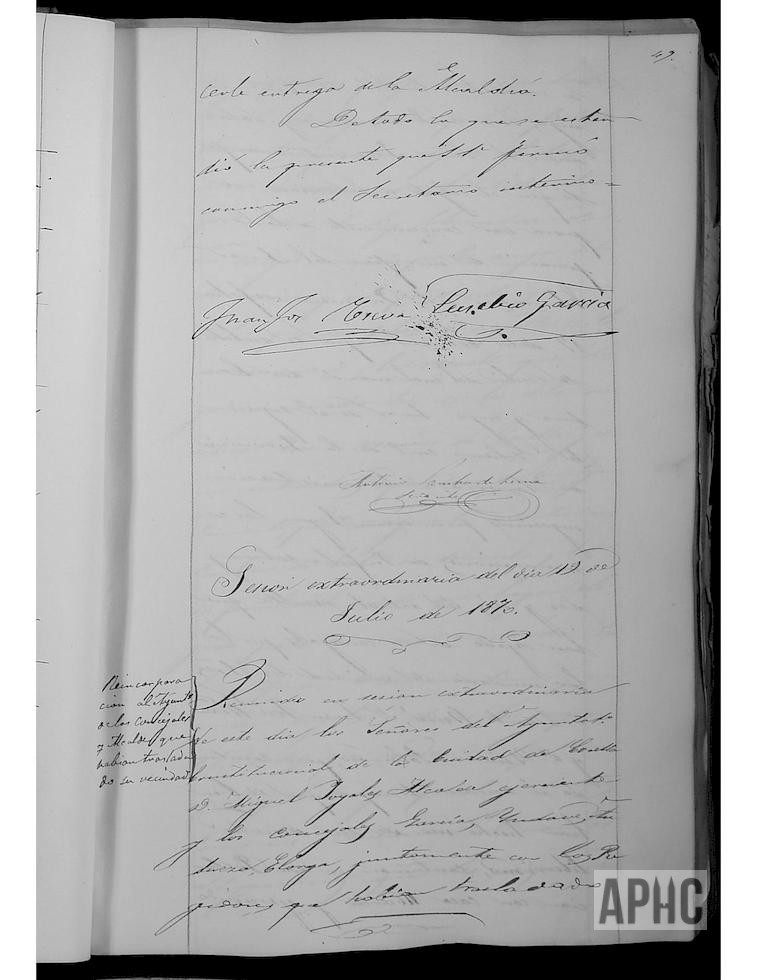 49.
cente entrega de la Alcaldia.
De todo lo que se esten-
dió la presente que S.S. firmó
conmigo el Secretario interino =
Juan José Eusebio Garcia
Antonio
Sesion extraordinaria del dia 19 de
Julio de 1873.
Reincorpora
cion al Ayunto
de los Concejales
y Alcalde que
habian traslada
do su vecindad
Reunidos en sesion extraordinaria
de este dia los Señores del Ayuntto
Constitucional de la Ciudad de
D. Miguel Alcalde ejerciente
y los Concejales Garcia,
juntamente con los Re
gidores que habian trasladado
APHC